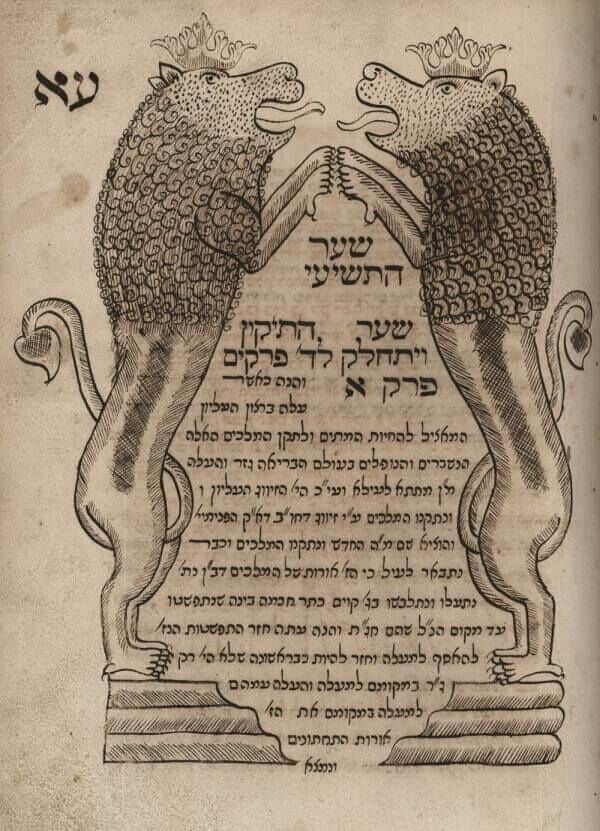 עא
שער
התשיעי
שער התיקון
ויתחלק לד' פרקים
פרק א
והנה כאשר
עלה ברצון העליון
המאציל להחיות המתים ולתקן המלכים האלה
הנשברים והנופלים בעולם הבריאה גזר והעלה
מ"ן מתתא לעילא ועי"כ הי' הזיווג העליון ו
ונתקנו המלכים ע"י זיווג דחו"ב דא"ק הפנימי'
והוציא שם מ"ה החדש ונתקנו המלכים וכבר
נתבאר לעיל כי הז' אורות של המלכים דב"ן נת'
נתעלו ונתלבשו בג' קוים כתר חכמה בינה שנתפשטו
עד מקום הנ"ל שהם חג"ת והנה עתה חזר התפשטות הנז'
להאסף למעלה וחזר להיות כבראשונה שלא הי' רק
ג"ר במקומם למעלה והעלה עמהם
למעלה במקומם את הז'
אורות התחתונים
ונמצא